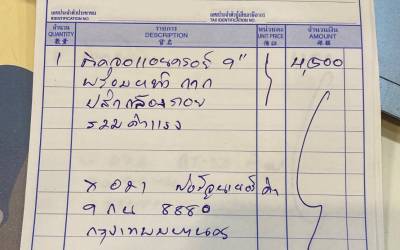 เลขประจำตัวประชาชน เลขประจำตัวผู้เสียภาษีอากร
IDENTIFICATION NO. TAX IDENTIFICATION NO.
จำนวน รายการ หน่วยละ จำนวนเงิน
QUANTITY DESCRIPTION UNIT PRICE AMOUNT
數量 貨名 價銀
1 ติดจอแอนดรอย 9" 4,500
พร้อมหน้ากาก
ปลั๊ก กล้องถอย
รวมค่าแรง
9 กน 8880
กรุงเทพมหานคร